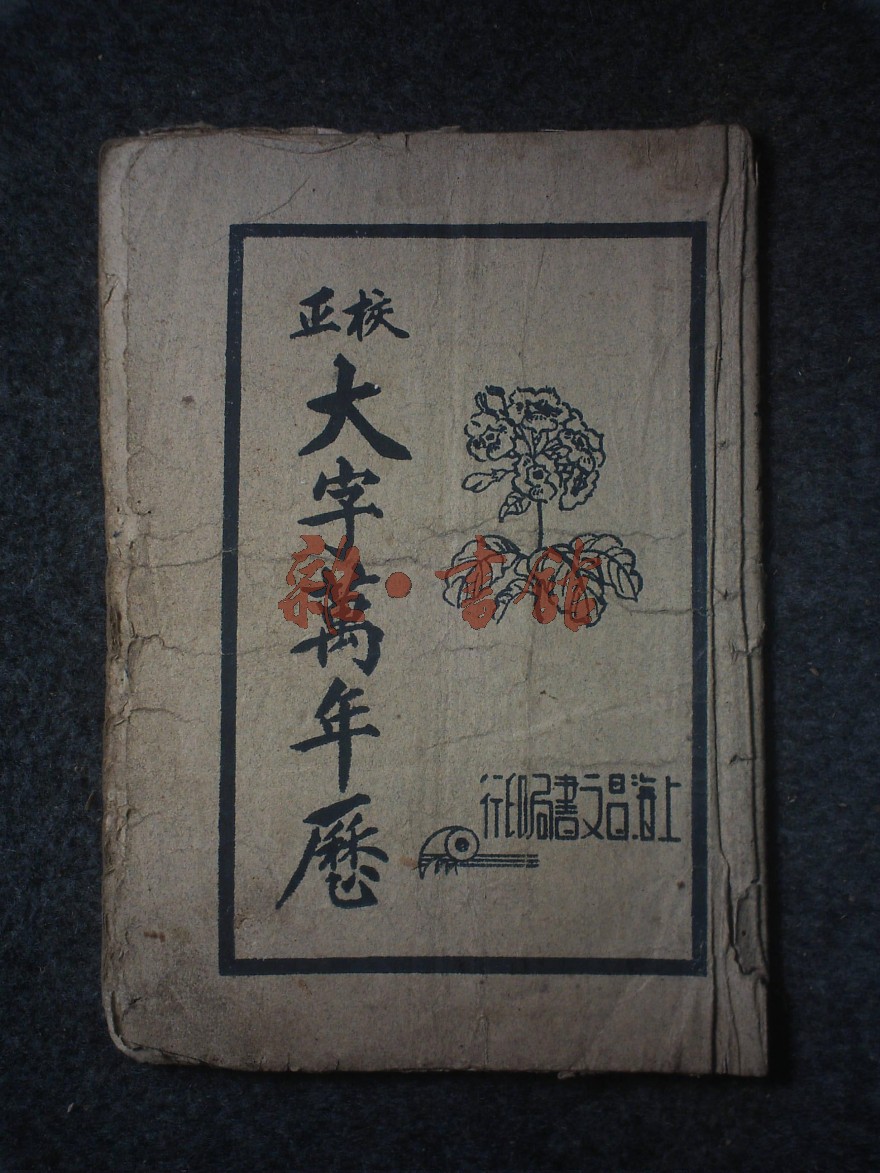 校正
大字萬年曆
上海昌文書局印行
雜·書館